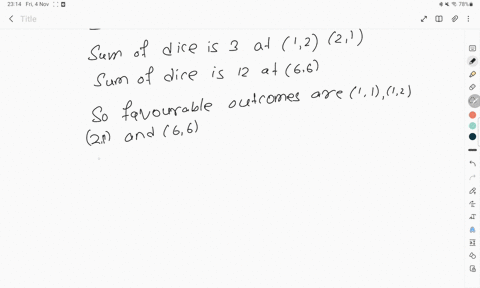 23:14 Fri, 4 Nov
78%
Title
Sum of dice is 3 at (1,2) (2,1)
Sum of dice is 12 at (6,6)
So favourable outcomes are (1,1),(1,2)
(2,1) and (6,6)